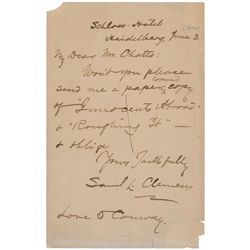 Schloss-Hotel
Heidelberg, June 3.
My Dear Mr. Chatto:
Won't you please
send me a paper covered copy
of "Innocents Abroad"
& "Roughing It" —
& oblige
Yours faithfully
Saml L. Clemens
Love to Conway.